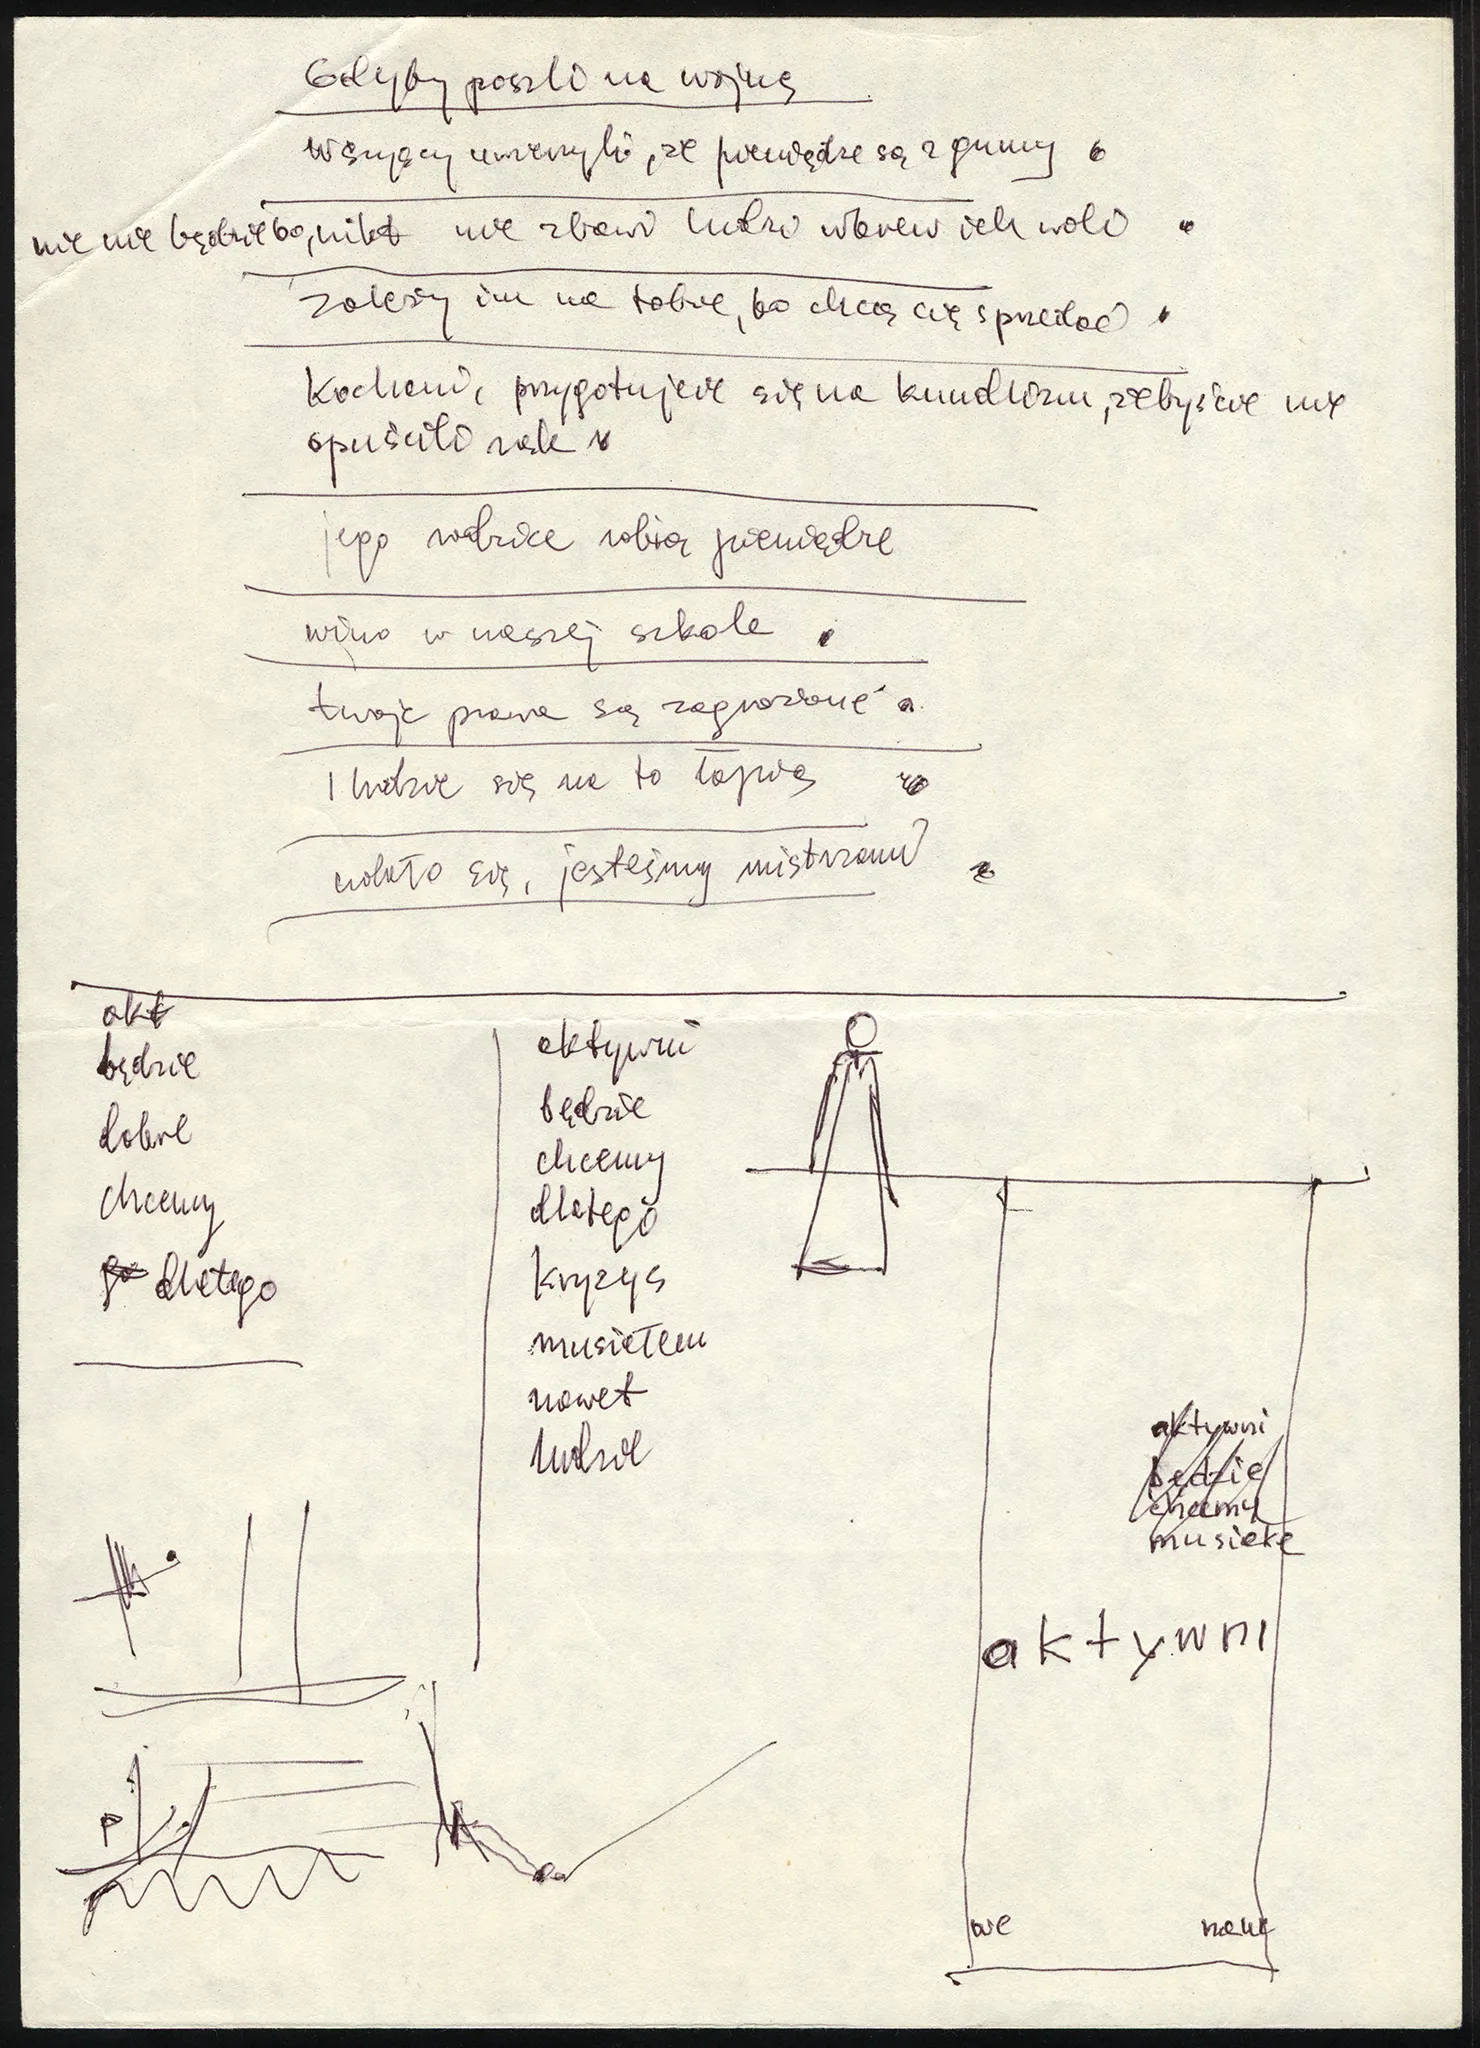 Gdyby poszli na wojnę
wszyscy wierzyli, że pieniądze są z gumy
nic nie będzie bo, nikt nie zbawi ludzi wbrew ich woli
zależy im na tobie, bo chcą cię sprzedać
Kochani, przygotujcie się na kundlizm, żebyście nie
opuścili rąk
jego rodzice robią pieniądze
wino w naszej szkole
twoje prawa są zagrożone
I ludzie się na to łapią
udało się, jesteśmy mistrzami
akt
będzie
dobre
chcemy
dlatego
aktywni
będzie
chcemy
dlatego
kryzys
musiałem
nawet
ludzie
aktywni
będzie
chcemy
aktywni
P